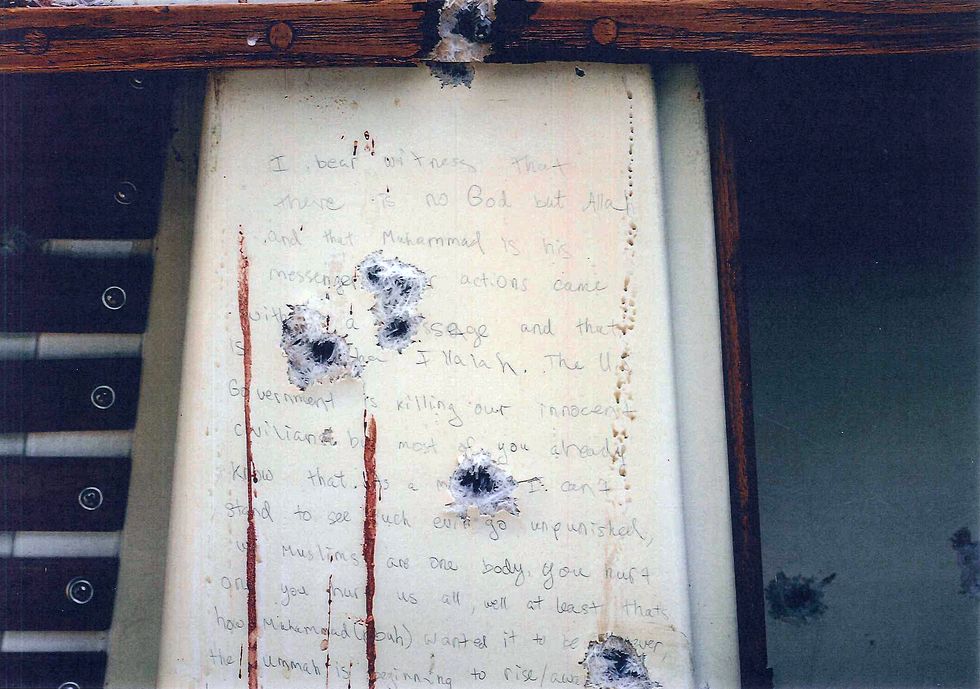 I bear witness that
there is no God but Allah
and that Muhammad is his
messenger r actions came
with a ssage and that
is ha Illalah. The U
Government is killing our innocent
civilians b most of you already
know that. As a m I can't
stand to see such evil go unpunished,
we Muslims are one body, you hurt
one you hurt us all, well at least thats
how Muhammad (pbuh) wanted it to be ever,
the ummah is beginning to rise/awa